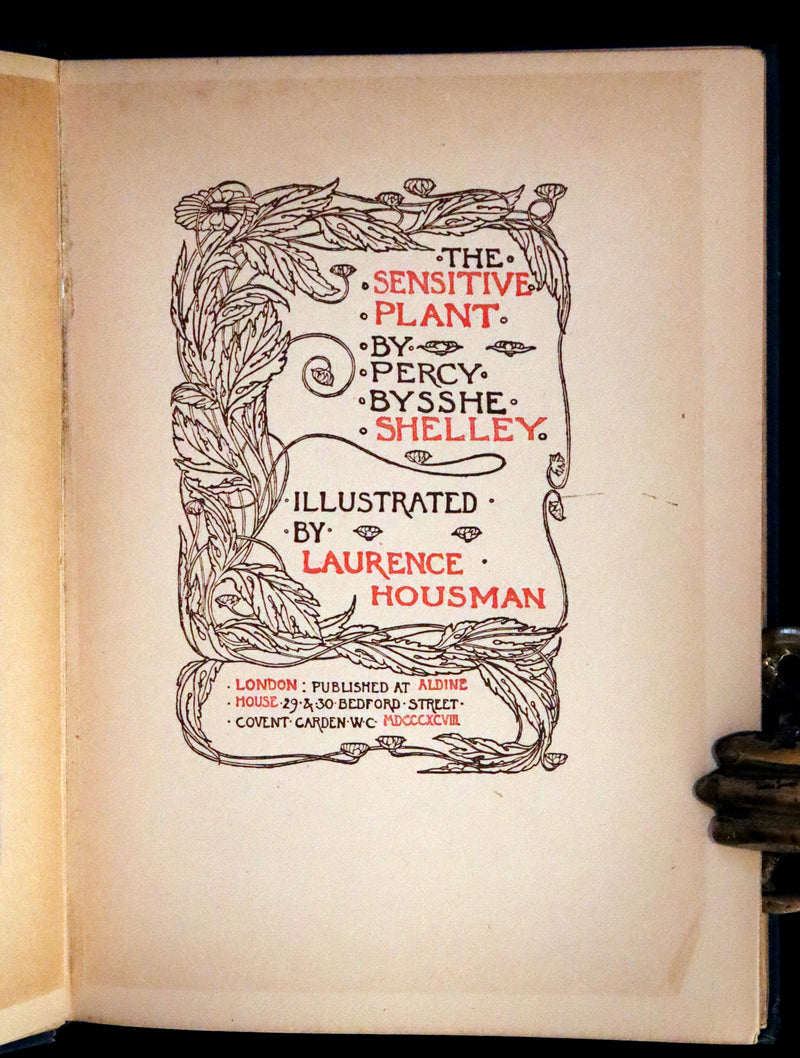 ·THE·
·SENSITIVE·
·PLANT·
·BY·
·PERCY·
·BYSSHE·
·SHELLEY·
·ILLUSTRATED·
·BY·
LAURENCE·
HOUSMAN
·LONDON: PUBLISHED AT ALDINE
·HOUSE·29·&·30·BEDFORD·STREET·
·COVENT·GARDEN·W·C·MDCCCXCVIII